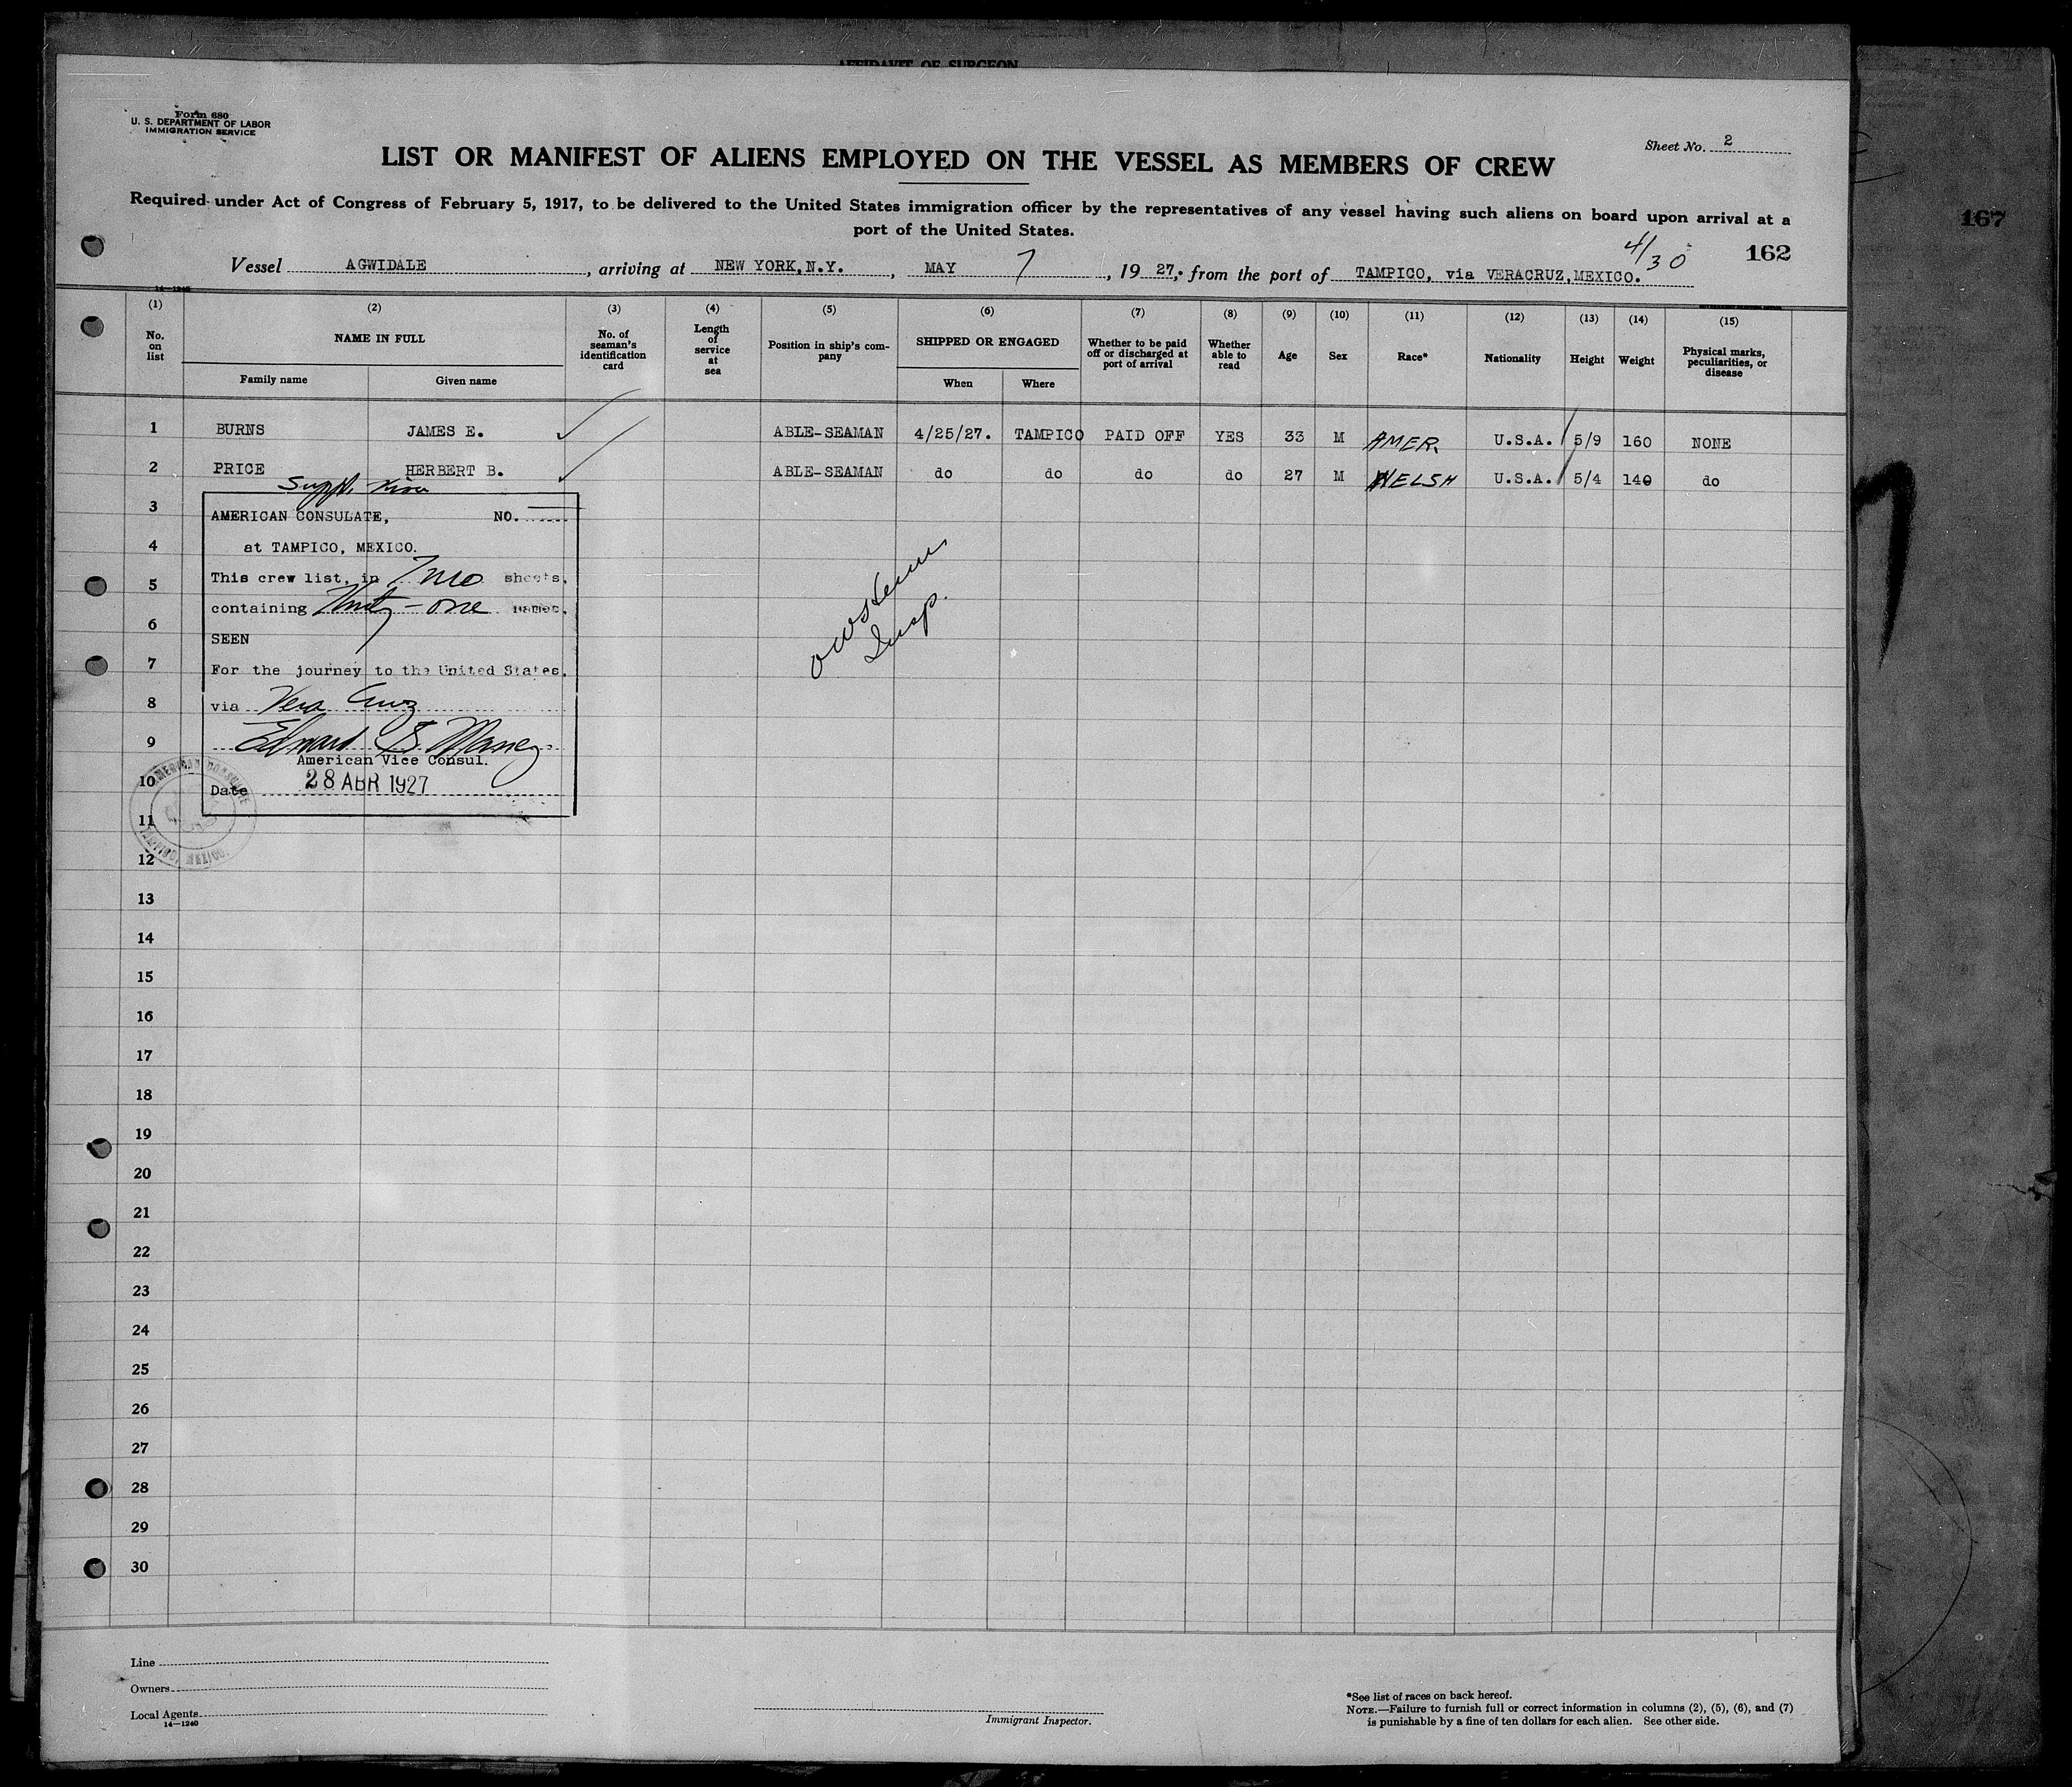 AFFIDAVIT OF SURGEON
Form 680
U. S. DEPARTMENT OF LABOR
IMMIGRATION SERVICE
Sheet No. 2
LIST OR MANIFEST OF ALIENS EMPLOYED ON THE VESSEL AS MEMBERS OF CREW
Required under Act of Congress of February 5, 1917, to be delivered to the United States immigration officer by the representatives of any vessel having such aliens on board upon arrival at a
port of the United States.
167
4/30
162
Vessel AGWIDALE, arriving at NEW YORK, N.Y., MAY 7, 1927, from the port of TAMPICO, via VERACRUZ, MEXICO.
14—1240
(1) (2) (3) (4) (5) (6) (7) (8) (9) (10) (11) (12) (13) (14) (15)
No. on list
NAME IN FULL
Family name
Given name
No. of seaman's identification card
Length of service at sea
Position in ship's company
SHIPPED OR ENGAGED
When
Where
Whether to be paid off or discharged at port of arrival
Whether able to read
Age
Sex
Race*
Nationality
Height
Weight
Physical marks, peculiarities, or disease
1 BURNS JAMES E. ABLE-SEAMAN 4/25/27. TAMPICO PAID OFF YES 33 M AMER. U.S.A. 5/9 160 NONE
2 PRICE HERBERT B. ABLE-SEAMAN do do do do 27 M WELSH U.S.A. 5/4 140 do
Suppl. Visa
3
AMERICAN CONSULATE, NO.
4
at TAMPICO, MEXICO.
5
This crew list, in Two sheets,
containing Thirty-one names,
6
SEEN
7
For the journey to the United States,
8
via Vera Cruz
9
Edward S. Maney
American Vice Consul.
10
Date 28 ABR 1927
AMERICAN CONSULATE
TAMPICO, MEXICO.
Insp.
11
12
13
14
15
16
17
18
19
20
21
22
23
24
25
26
27
28
29
30
Line
Owners
Local Agents
14—1240
Immigrant Inspector.
*See list of races on back hereof.
NOTE.—Failure to furnish full or correct information in columns (2), (5), (6), and (7)
is punishable by a fine of ten dollars for each alien. See other side.